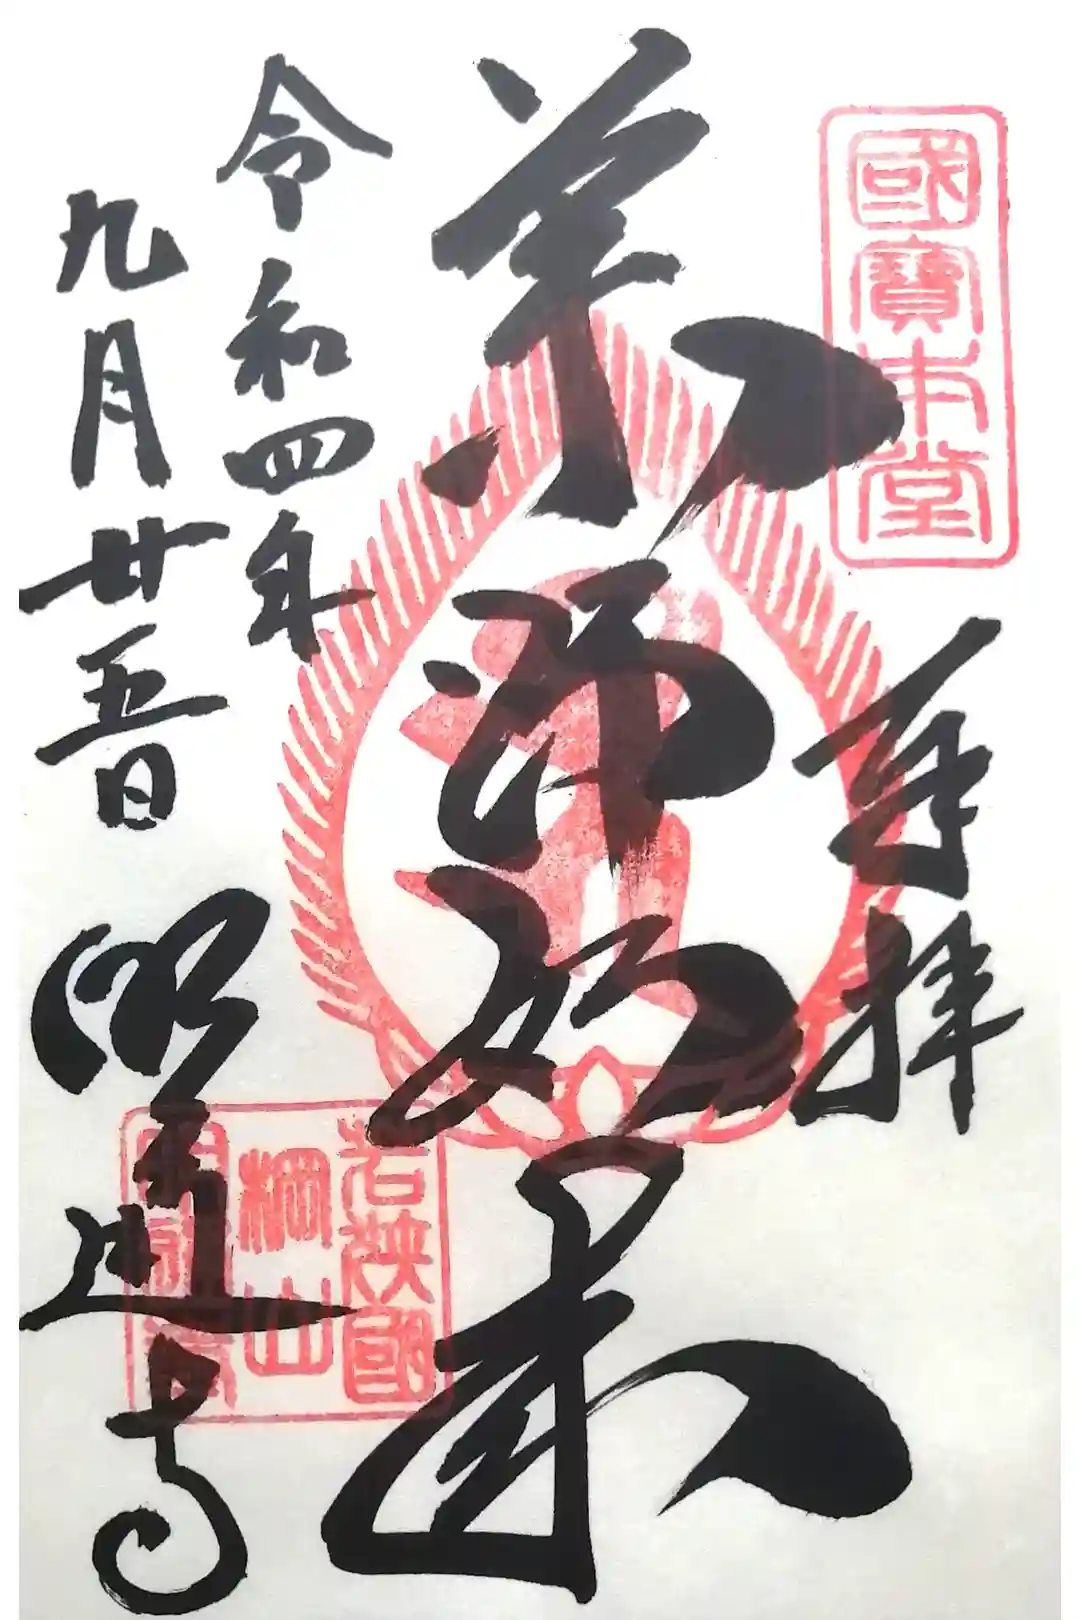 國寶本堂
奉拝
薬師如来
令和四年
九月廿五日
若狭國
棡山
明通寺